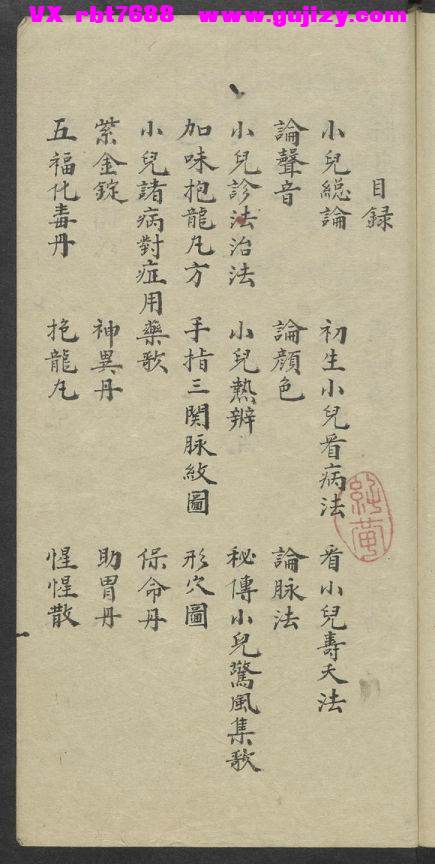 VX rbt7688 www.gujizy.com
目録
小兒総論 初生小兒看病法 看小兒壽夭法
論聲音 論顔色 論脉法
小兒診法治法 小兒熱辨 秘傳小兒驚風集歌
加味抱龍凡方 手指三関脉紋圖 形穴圖
小兒諸病對症用藥歌 保命丹
紫金錠 神異丹 助胃丹
五福化毒丹 抱龍凡 惺惺散